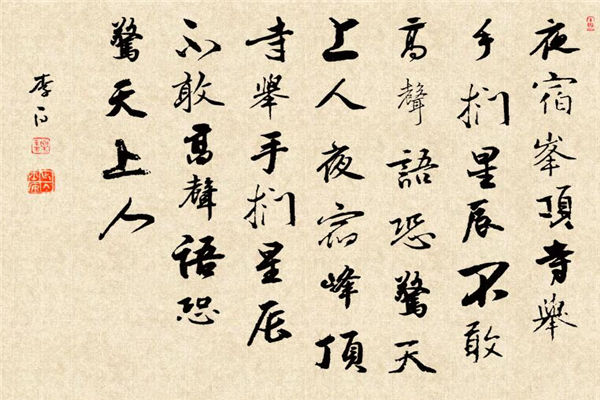 夜宿峯頂寺舉
手捫星辰不敢
高聲語恐驚天
上人夜宿峰頂
寺舉手捫星辰
不敢高聲語恐
驚天上人
李白